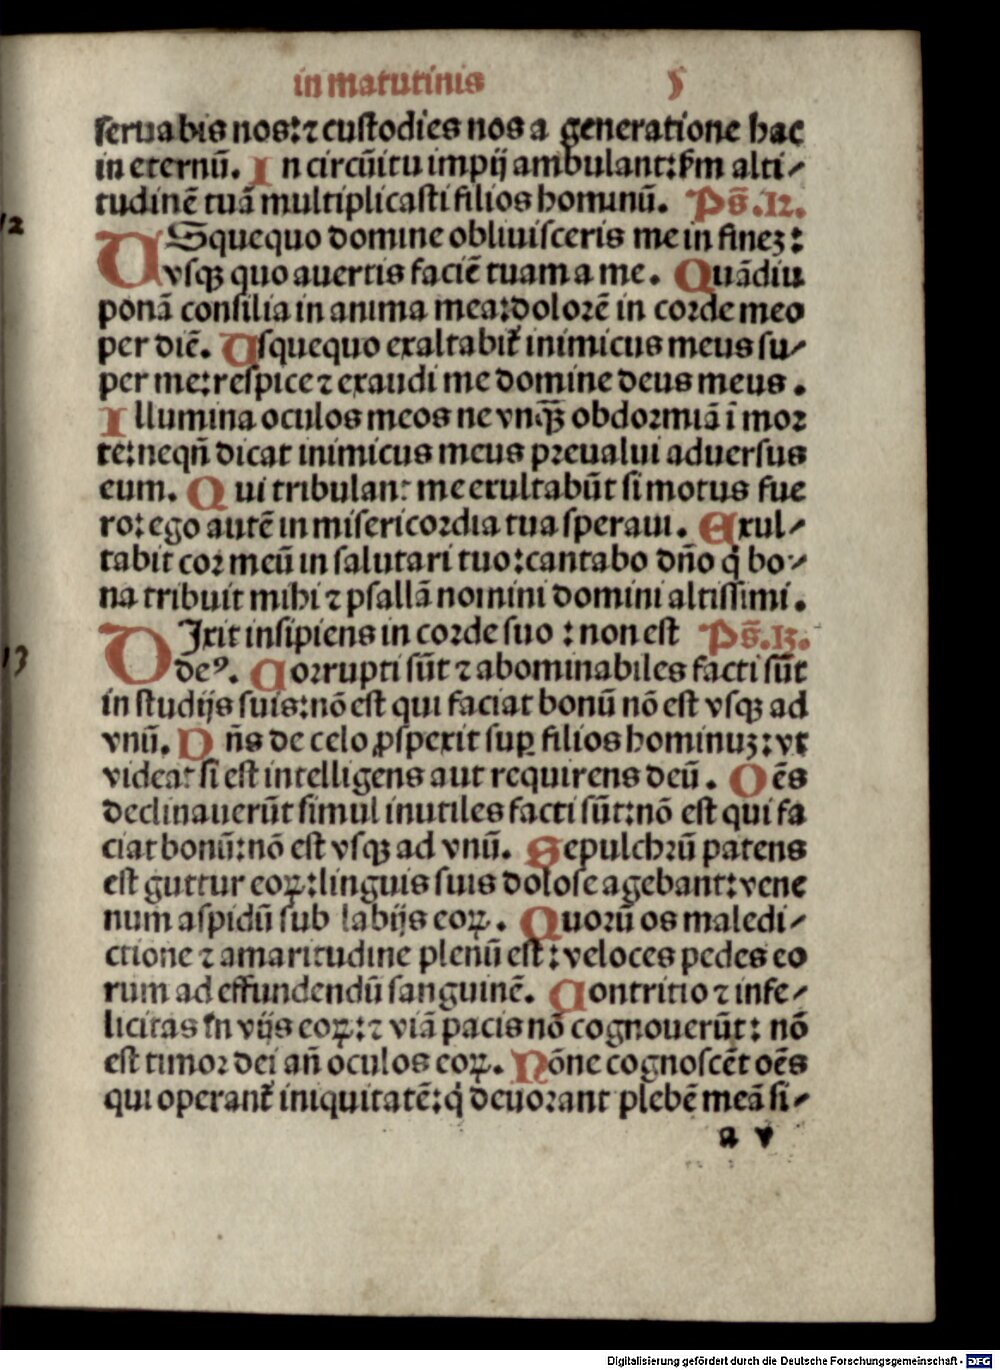 in matutinis 5
seruabis nos:⁊ custodies nos a generatione hac
in eternū. In circūitu impij ambulant:ẜm alti⸗
tudinē tuā multiplicasti filios hominū. Ps̄.12.
12
VSquequo domine obliuisceris me in fineʒ:
vsqꝫ quo auertis faciē tuam a me. Quādiu
ponā consilia in anima mea:dolorē in corde meo
per diē. Usquequo exaltabit᷑ inimicus meus su⸗
per me:respice ⁊ exaudi me domine deus meus.
Illumina oculos meos ne vnqꝫ̄ obdormiā ī mor
te:neqn̄ dicat inimicus meus preualui aduersus
eum. Qui tribulant me exultabūt si motus fue
ro:ego autē in misericordia tua speraui. Exul⸗
tabit cor meū in salutari tuo:cantabo dn̄o q̇ bo⸗
na tribuit mihi ⁊ psallā nomini domini altissimi.
DIxit insipiens in corde suo : non est Ps̄.13.
13
deꝰ. Corrupti sūt ⁊ abominabiles facti sūt
in studijs suis:nō est qui faciat bonū nō est vsqꝫ ad
vnū. Dn̄s de celo ꝓspexit suꝑ filios hominuʒ:vt
videat si est intelligens aut requirens deū. Oēs
declinauerūt simul inutiles facti sūt:nō est qui fa
ciat bonū:nō est vsqꝫ ad vnū. Sepulchrū patens
est guttur eoꝝ:linguis suis dolose agebant:vene
num aspidū sub labijs eoꝝ. Quorū os maledi⸗
ctione ⁊ amaritudine plenū est:veloces pedes eo
rum ad effundendū sanguinē. Contritio ⁊ infe⸗
licitas in vijs eoꝝ:⁊ viā pacis nō cognouerūt: nō
est timor dei an̄ oculos eoꝝ. Nōne cognoscēt oēs
qui operant᷑ iniquitatē:q̇ deuorant plebē meā si⸗
a v
Digitalisierung gefördert durch die Deutsche Forschungsgemeinschaft - DFG